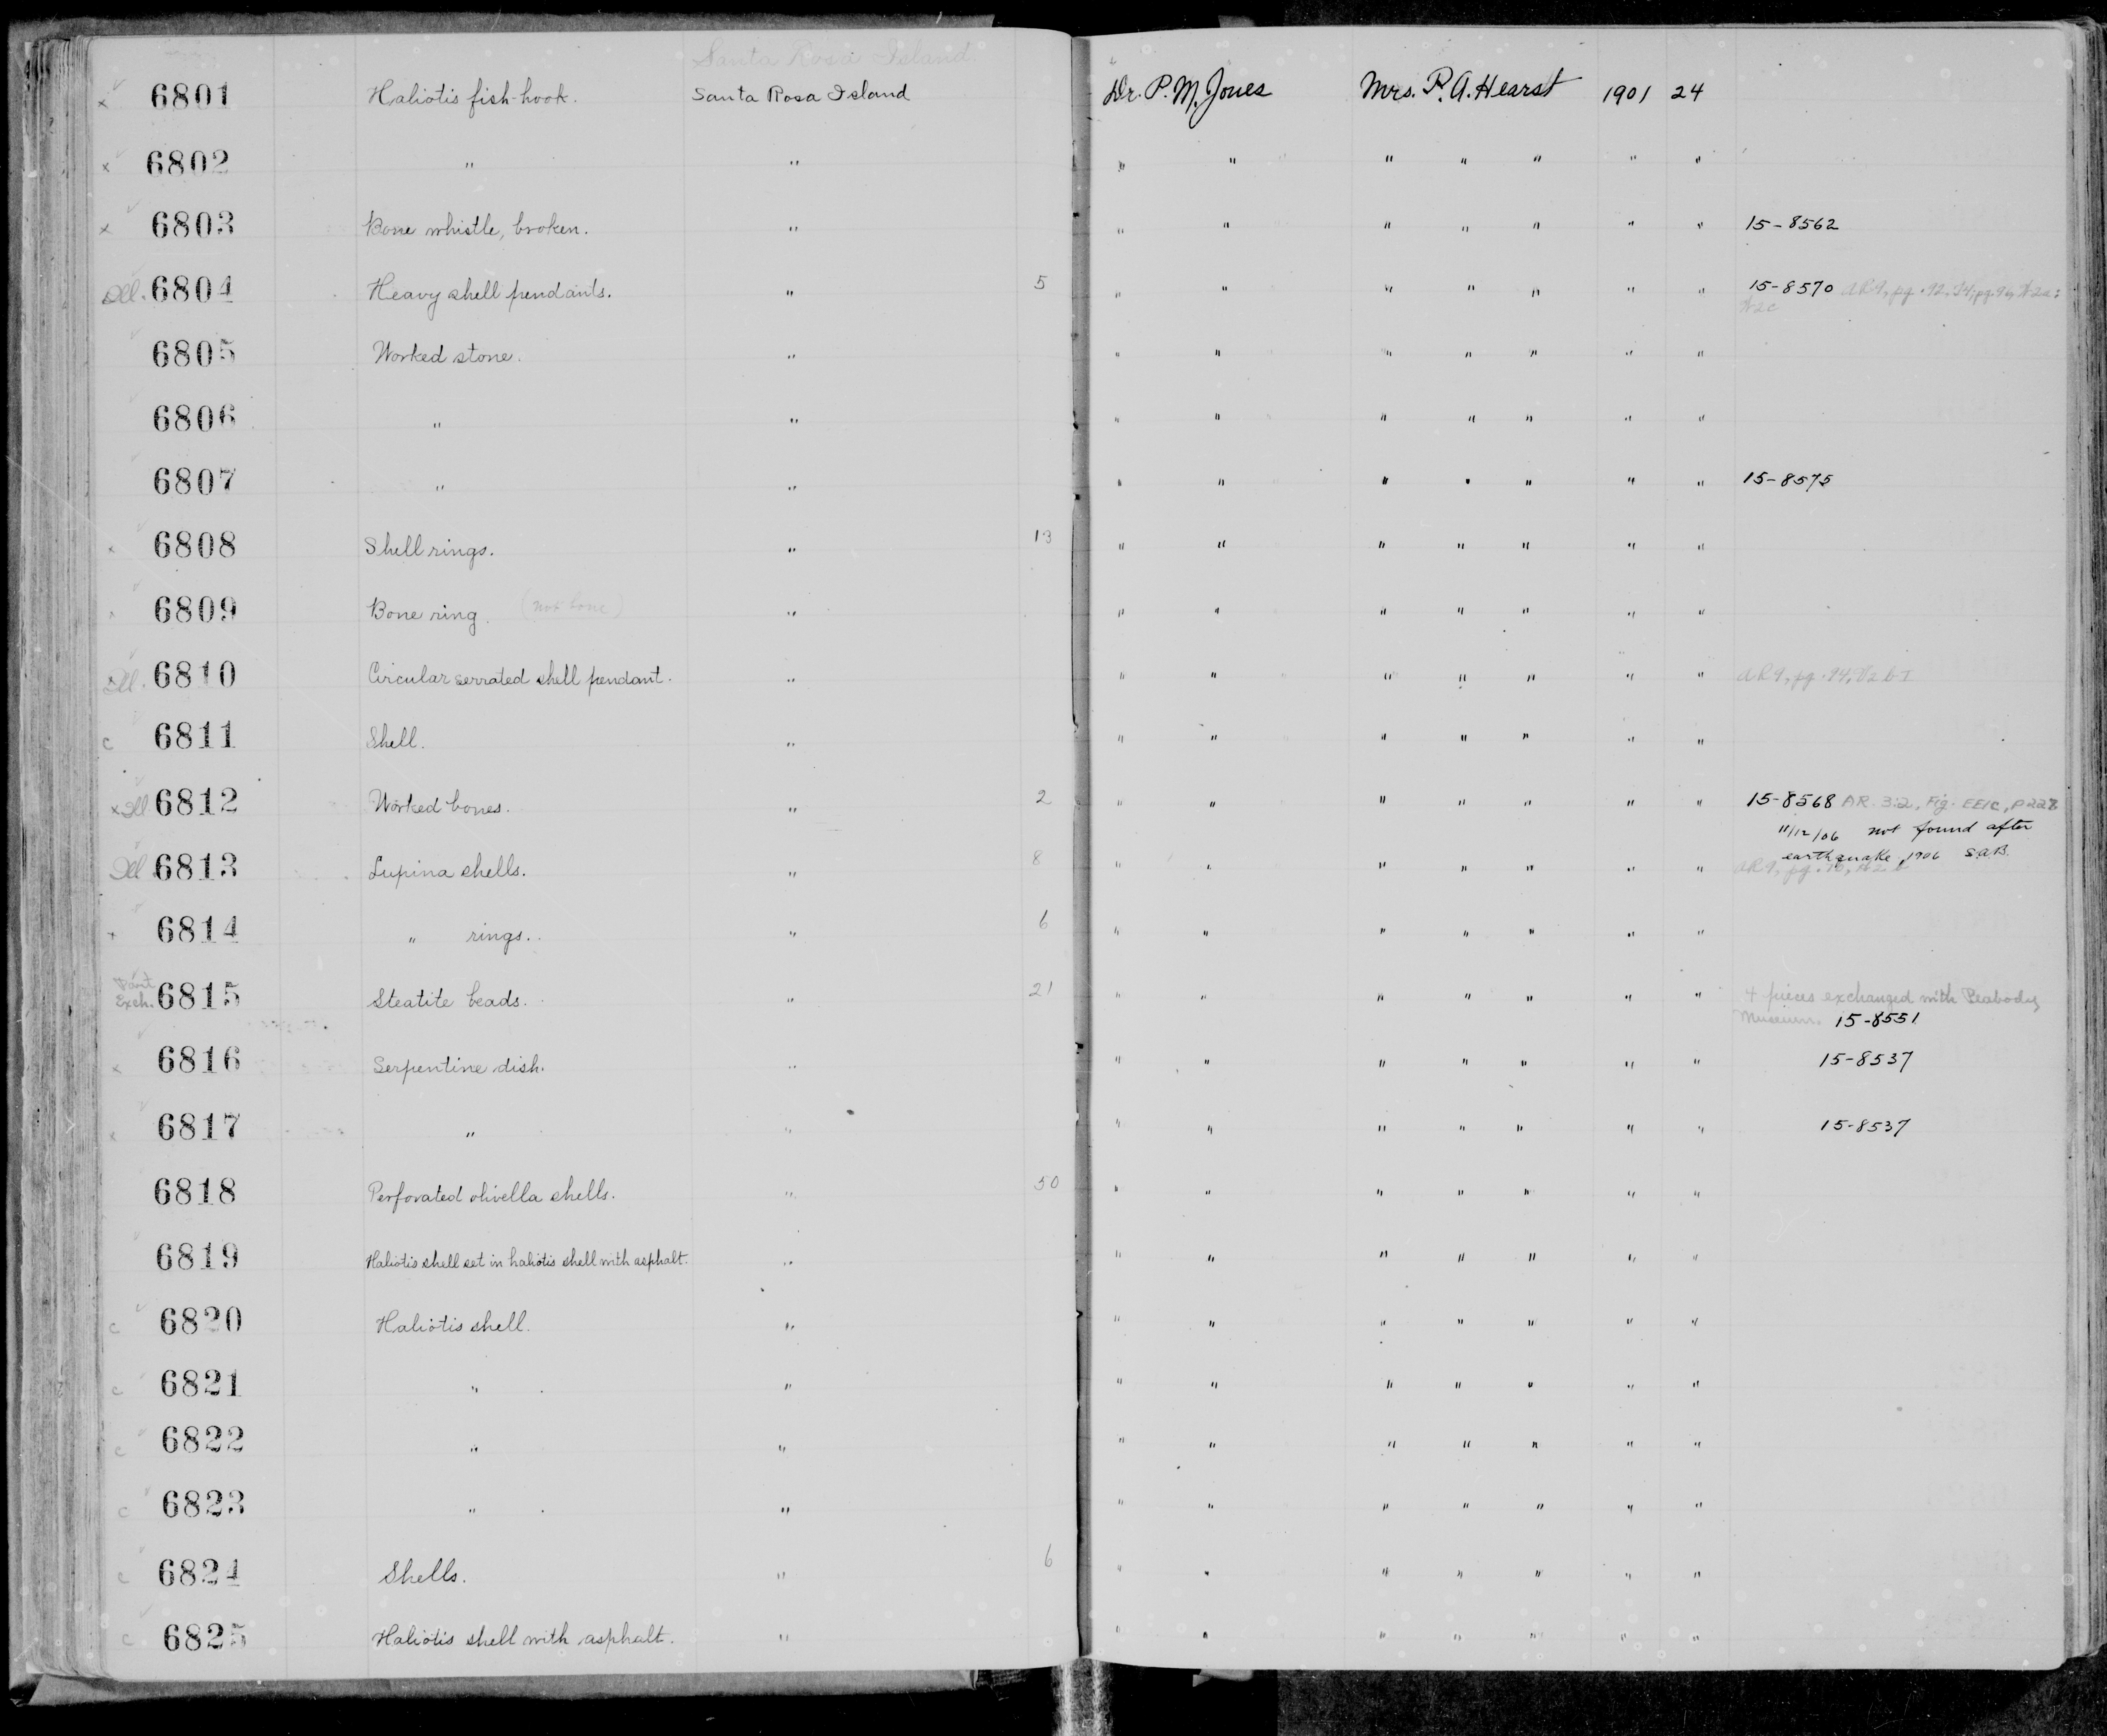 Santa Rosa Island
x 6801 Haliotis fish-hook. Santa Rosa Island Dr. P. M. Jones Mrs. P. A. Hearst 1901 24
x 6802 " " " " " " " " "
x 6803 Bone whistle, broken. " " " " " " " " 15-8562
Ill. 6804 Heavy shell pendants. " 5 " " " " " " " 15-8570 AR9, pg. 92,
6805 Worked stone. " " " " " " " "
6806 " " " " " " " " "
6807 " " " " " " " " " 15-8575
x 6808 Shell rings. " 13 " " " " " " "
6809 Bone ring. (not bone) " " " " " " " "
Ill. 6810 Circular serrated shell pendant. " " " " " " " " AR9, pg. 94,
c 6811 Shell. " " " " " " " "
x Ill 6812 Worked bones. " 2 " " " " " " " 15-8568 AR 3:2, Fig. EE1c, p 228
11/12/06 not found after
earthquake, 1906 S.A.B.
Ill 6813 Lupina shells. " 8 " " " " " " " AR9, pg.
x 6814 " rings. " 6 " " " " " " "
Part
Exch. 6815 Steatite beads. " 21 " " " " " " " 4 pieces exchanged with Peabody
Museum. 15-8551
x 6816 Serpentine dish. " " " " " " " " 15-8537
x 6817 " " " " " " " " " 15-8537
6818 Perforated olivella shells. " 50 " " " " " " "
6819 Haliotis shell set in haliotis shell with asphalt. " " " " " " " "
c 6820 Haliotis shell. " " " " " " " "
c 6821 " " " " " " " " "
c 6822 " " " " " " " " "
c 6823 " " " " " " " " "
c 6824 Shells. " 6 " " " " " " "
c 6825 Haliotis shell with asphalt. " " " " " " " "